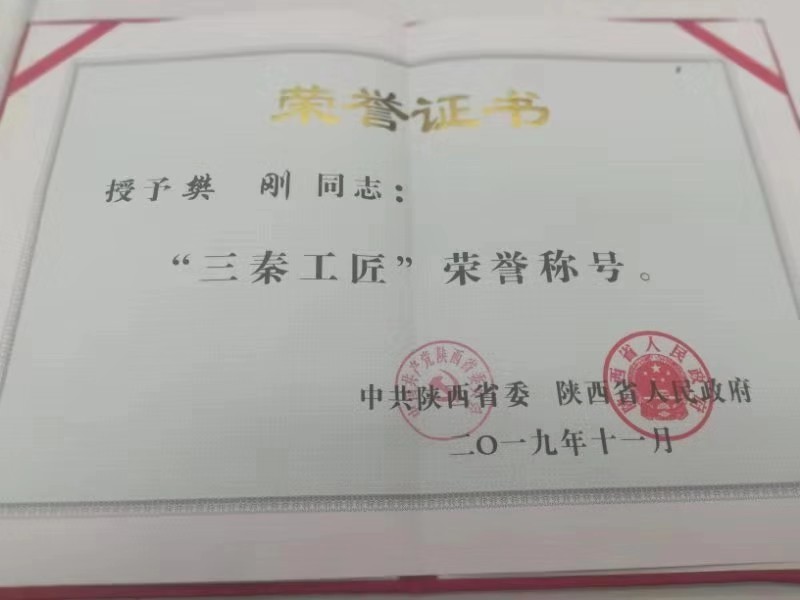 荣誉证书
授予樊 刚 同志：
“三秦工匠”荣誉称号。
中共陕西省委 陕西省人民政府
二〇一九年十一月
中国共产党陕西省委员会
陕西省人民政府